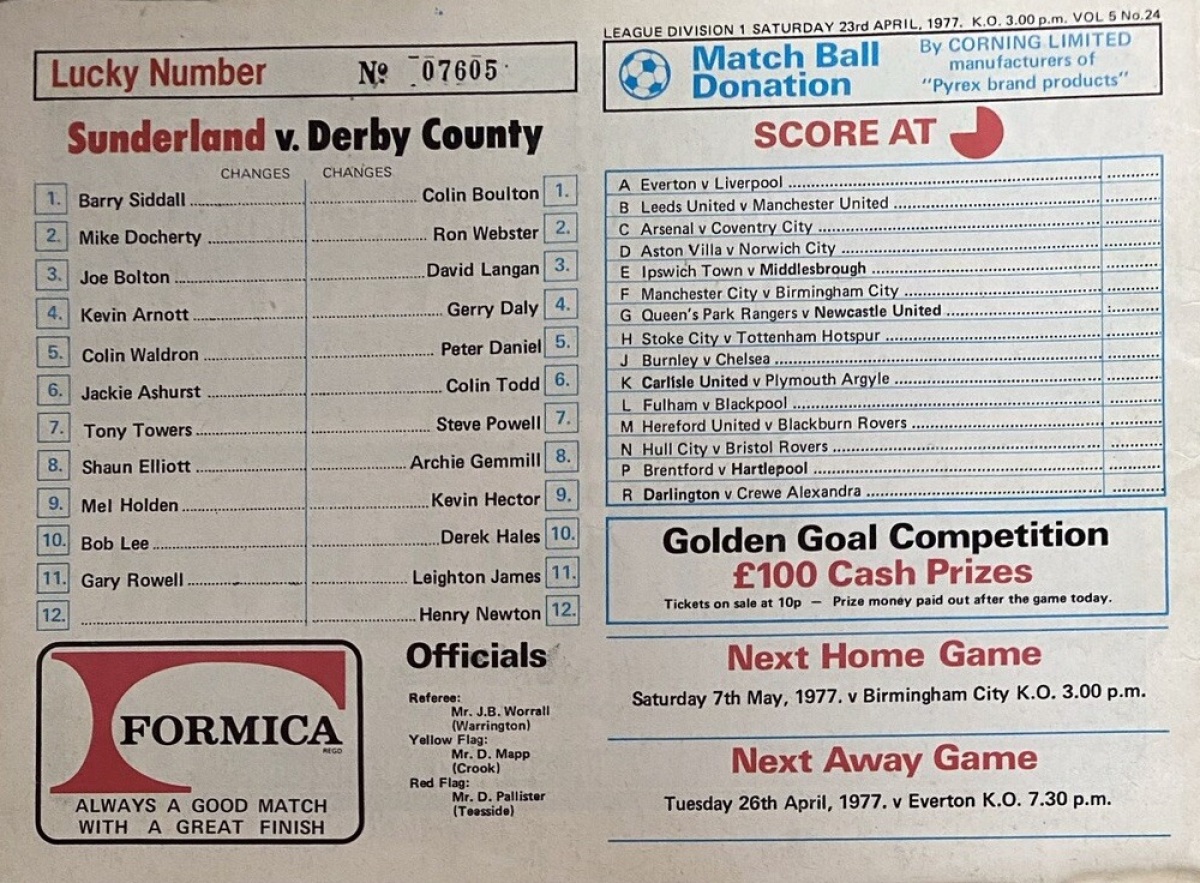 LEAGUE DIVISION 1 SATURDAY 23rd APRIL, 1977. K.O. 3.00 p.m. VOL 5 No.24
Lucky Number Nº 07605
Sunderland v. Derby County
CHANGES CHANGES
1. Barry Siddall Colin Boulton 1.
2. Mike Docherty Ron Webster 2.
3. Joe Bolton David Langan 3.
4. Kevin Arnott Gerry Daly 4.
5. Colin Waldron Peter Daniel 5.
6. Jackie Ashurst Colin Todd 6.
7. Tony Towers Steve Powell 7.
8. Shaun Elliott Archie Gemmill 8.
9. Mel Holden Kevin Hector 9.
10. Bob Lee Derek Hales 10.
11. Gary Rowell Leighton James 11.
12. Henry Newton 12.
FORMICA
REGD
ALWAYS A GOOD MATCH
WITH A GREAT FINISH
Officials
Referee:
Mr. J.B. Worrall
(Warrington)
Yellow Flag:
Mr. D. Mapp
(Crook)
Red Flag:
Mr. D. Pallister
(Teesside)
Match Ball
Donation
By CORNING LIMITED
manufacturers of
"Pyrex brand products"
SCORE AT
A Everton v Liverpool
B Leeds United v Manchester United
C Arsenal v Coventry City
D Aston Villa v Norwich City
E Ipswich Town v Middlesbrough
F Manchester City v Birmingham City
G Queen's Park Rangers v Newcastle United
H Stoke City v Tottenham Hotspur
J Burnley v Chelsea
K Carlisle United v Plymouth Argyle
L Fulham v Blackpool
M Hereford United v Blackburn Rovers
N Hull City v Bristol Rovers
P Brentford v Hartlepool
R Darlington v Crewe Alexandra
Golden Goal Competition
£100 Cash Prizes
Tickets on sale at 10p — Prize money paid out after the game today.
Next Home Game
Saturday 7th May, 1977. v Birmingham City K.O. 3.00 p.m.
Next Away Game
Tuesday 26th April, 1977. v Everton K.O. 7.30 p.m.